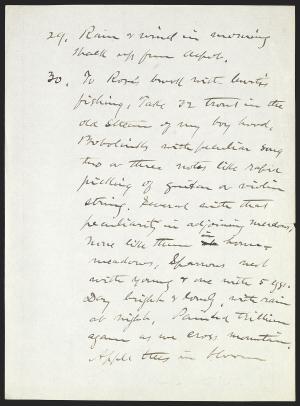 29. Rain & wind in morning
Walk up from depot.
30. To Rose brook with Curtis
fishing, Take 32 trout in the
old stream of my boy hood,
Bobolinks with peculiar song
two or three notes like rapid
picking of guitar or violin
string. Several with that
peculiarity in adjoining meadows,
none like them in home
meadows, Sparrows nest
with young & one with 5 eggs.
Day bright & lovely, with rain
at night. Painted trillium
again as we cross mountain.
Apple trees in bloom